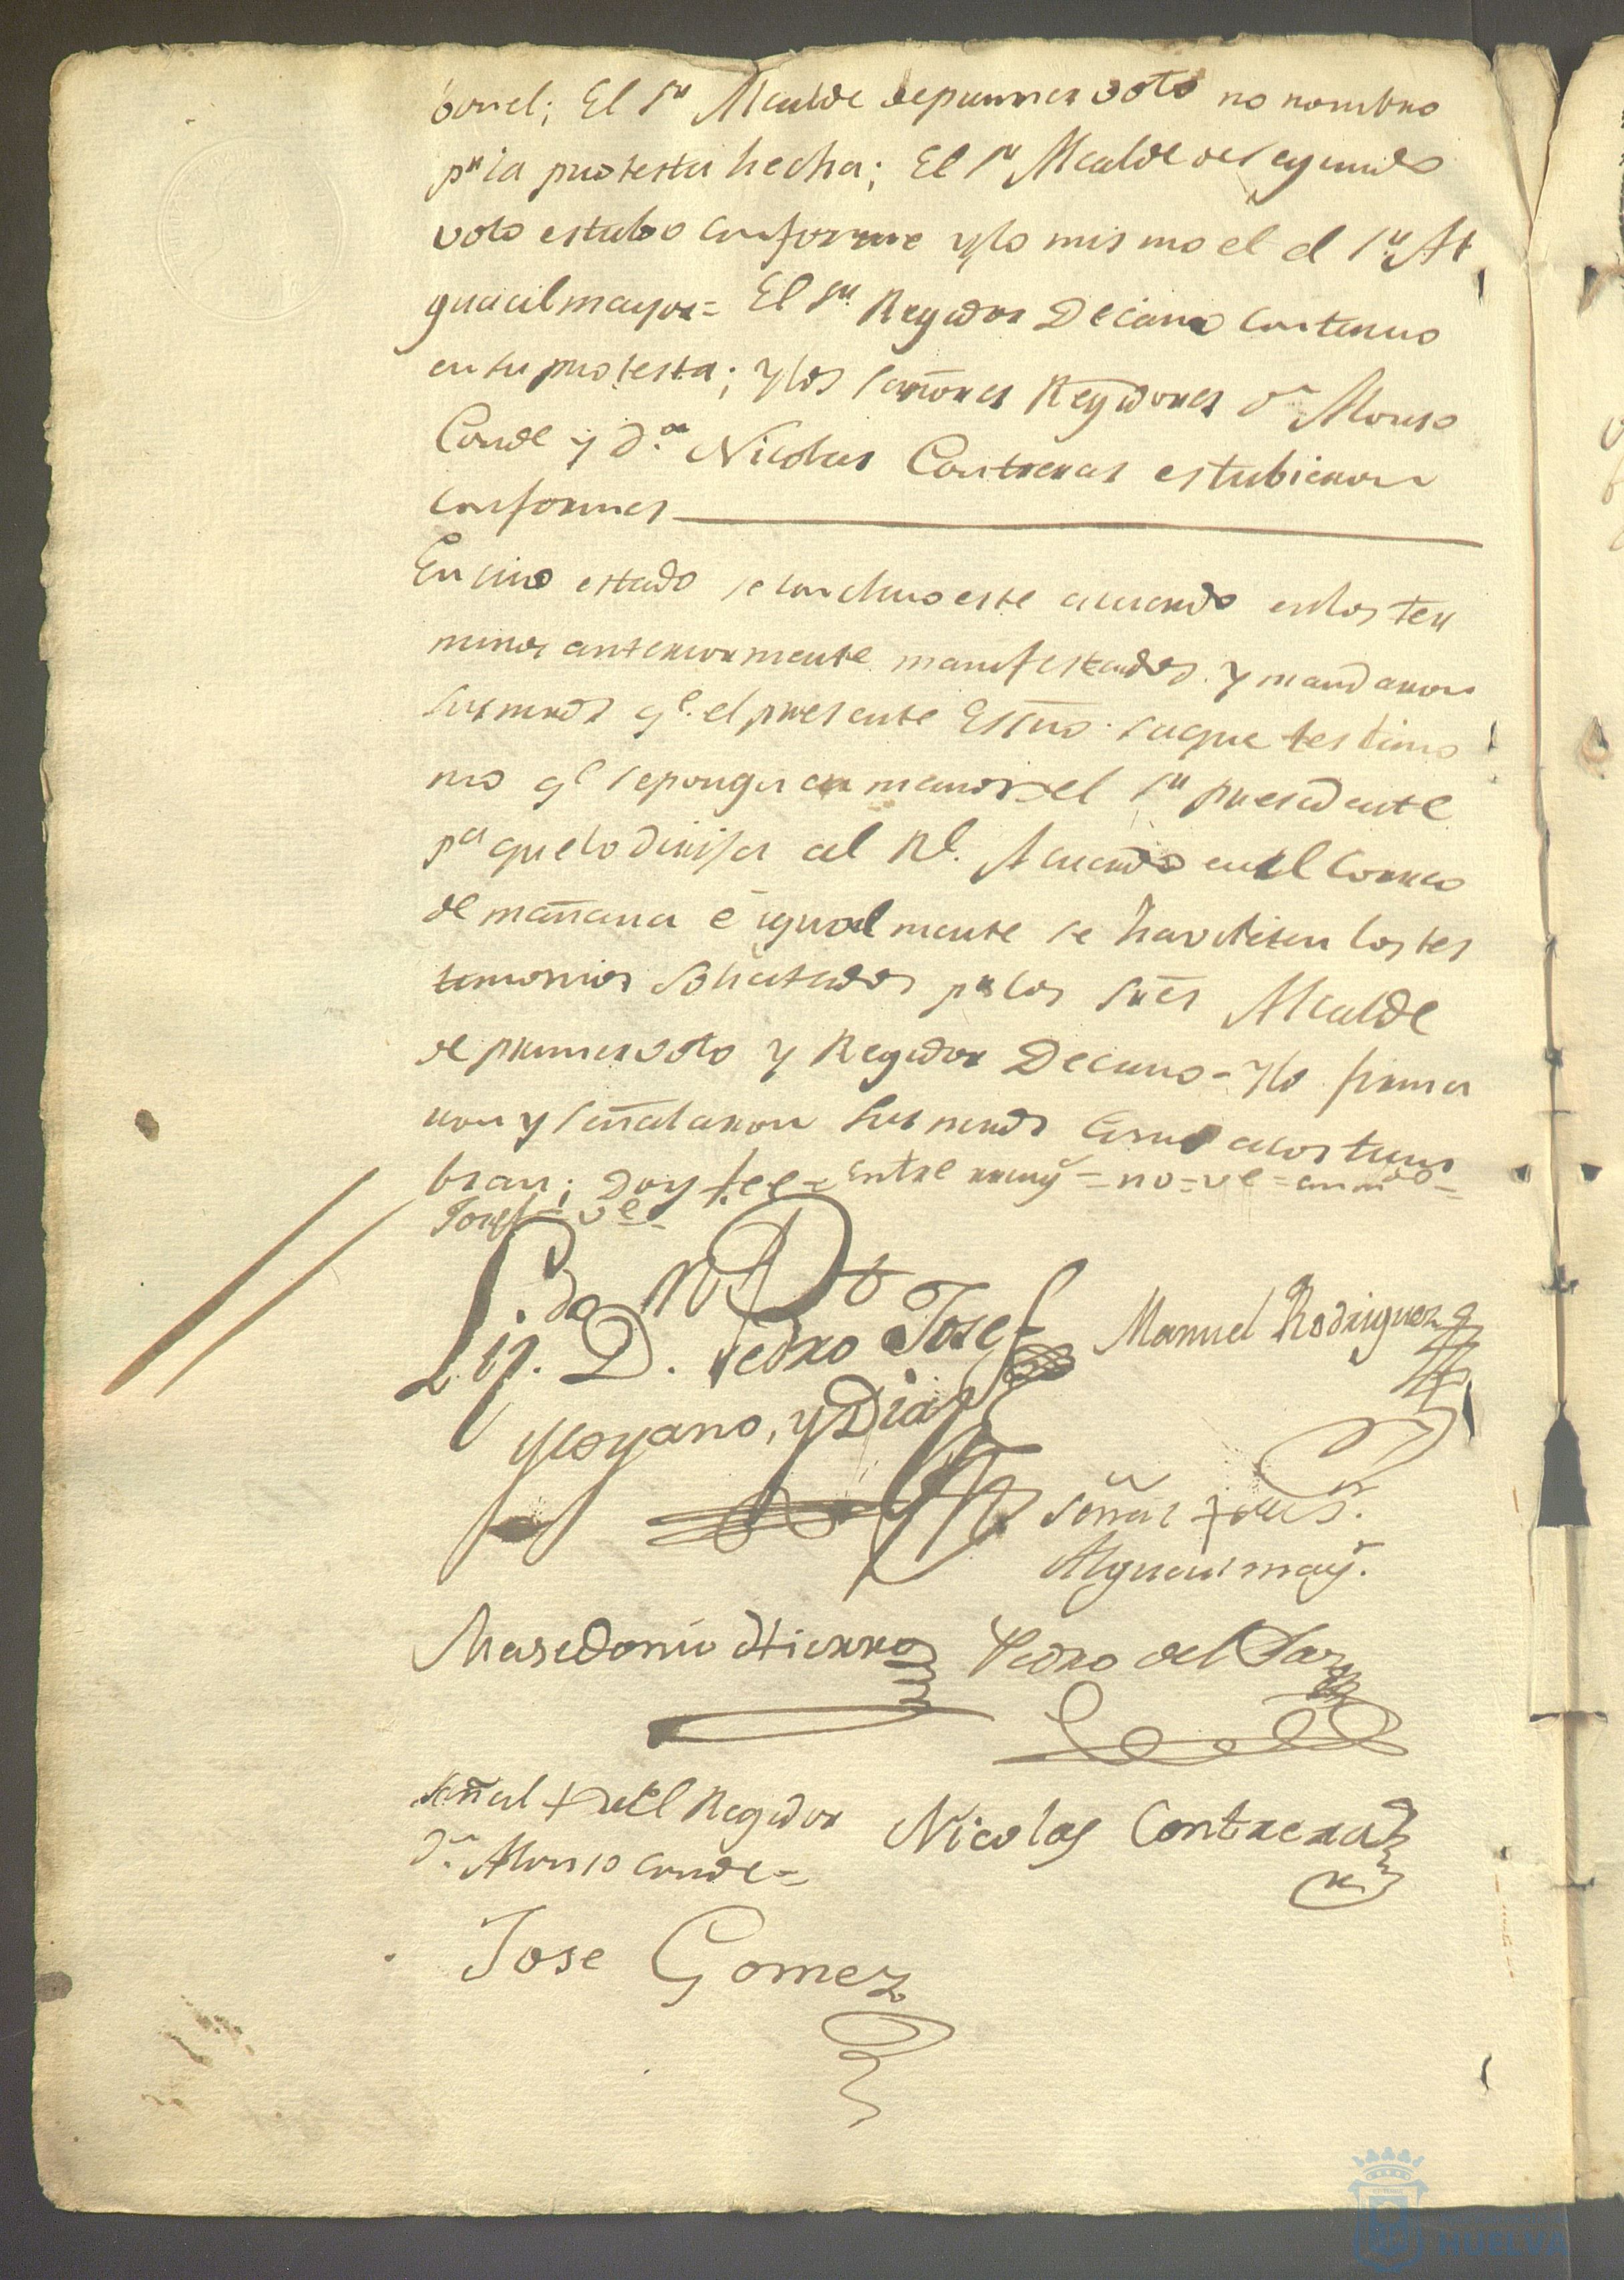 bonel; El Sr Alcalde de primer voto no nombro
pr la protesta hecha; El Sr Alcalde de segundo
voto estubo conforme y lo mismo el el Sr. Al
guacil mayor= El Sr. Regidor Decano continuo
en su protesta; y los señores Regidores dn Alonso
Conde y dn. Nicolas Contreras estubieron
conformes
En cuio estado se concluio este acuerdo en los ter
minos anteriormente manifestados. y mandaron
sus mrds qe. el presente Essno. saque testimo
nio qe se ponga en manos del Sr presidente
pa que lo dirija al Rl. Acuerdo en el correo
de mañana é igualmente se haviliten los tes
timonios solicitados pr los Sres Alcalde
de primer voto y Regidor Decano= y lo firma
ron y señalaron sus mrds como acostum
bran; doy fee= Entre rreng.s = no = ve = enmdo =
Josef = ve =
Liz.do D. Pedro Josef
Moyano, y Diaz
Manuel Rodriguez
Señal + del Sr.
Alguacil may.r
Masedonio Hierro
Pedro del Saz
Señal + del Regidor
dn. Alonso Conde=
Nicolas Contreras
Jose Gomez
HUELVA